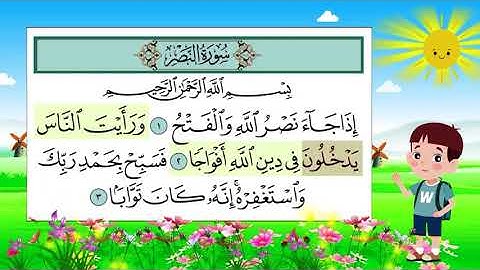 سُورَةُ النَّصْرِ
بِسْمِ اللَّهِ الرَّحْمَٰنِ الرَّحِيمِ
إِذَا جَآءَ نَصْرُ اللَّهِ وَالْفَتْحُ ١ وَرَأَيْتَ النَّاسَ
يَدْخُلُونَ فِي دِينِ اللَّهِ أَفْوَاجًا ٢ فَسَبِّحْ بِحَمْدِ رَبِّكَ
وَاسْتَغْفِرْهُ ۚ إِنَّهُۥ كَانَ تَوَّابًا ٣
W